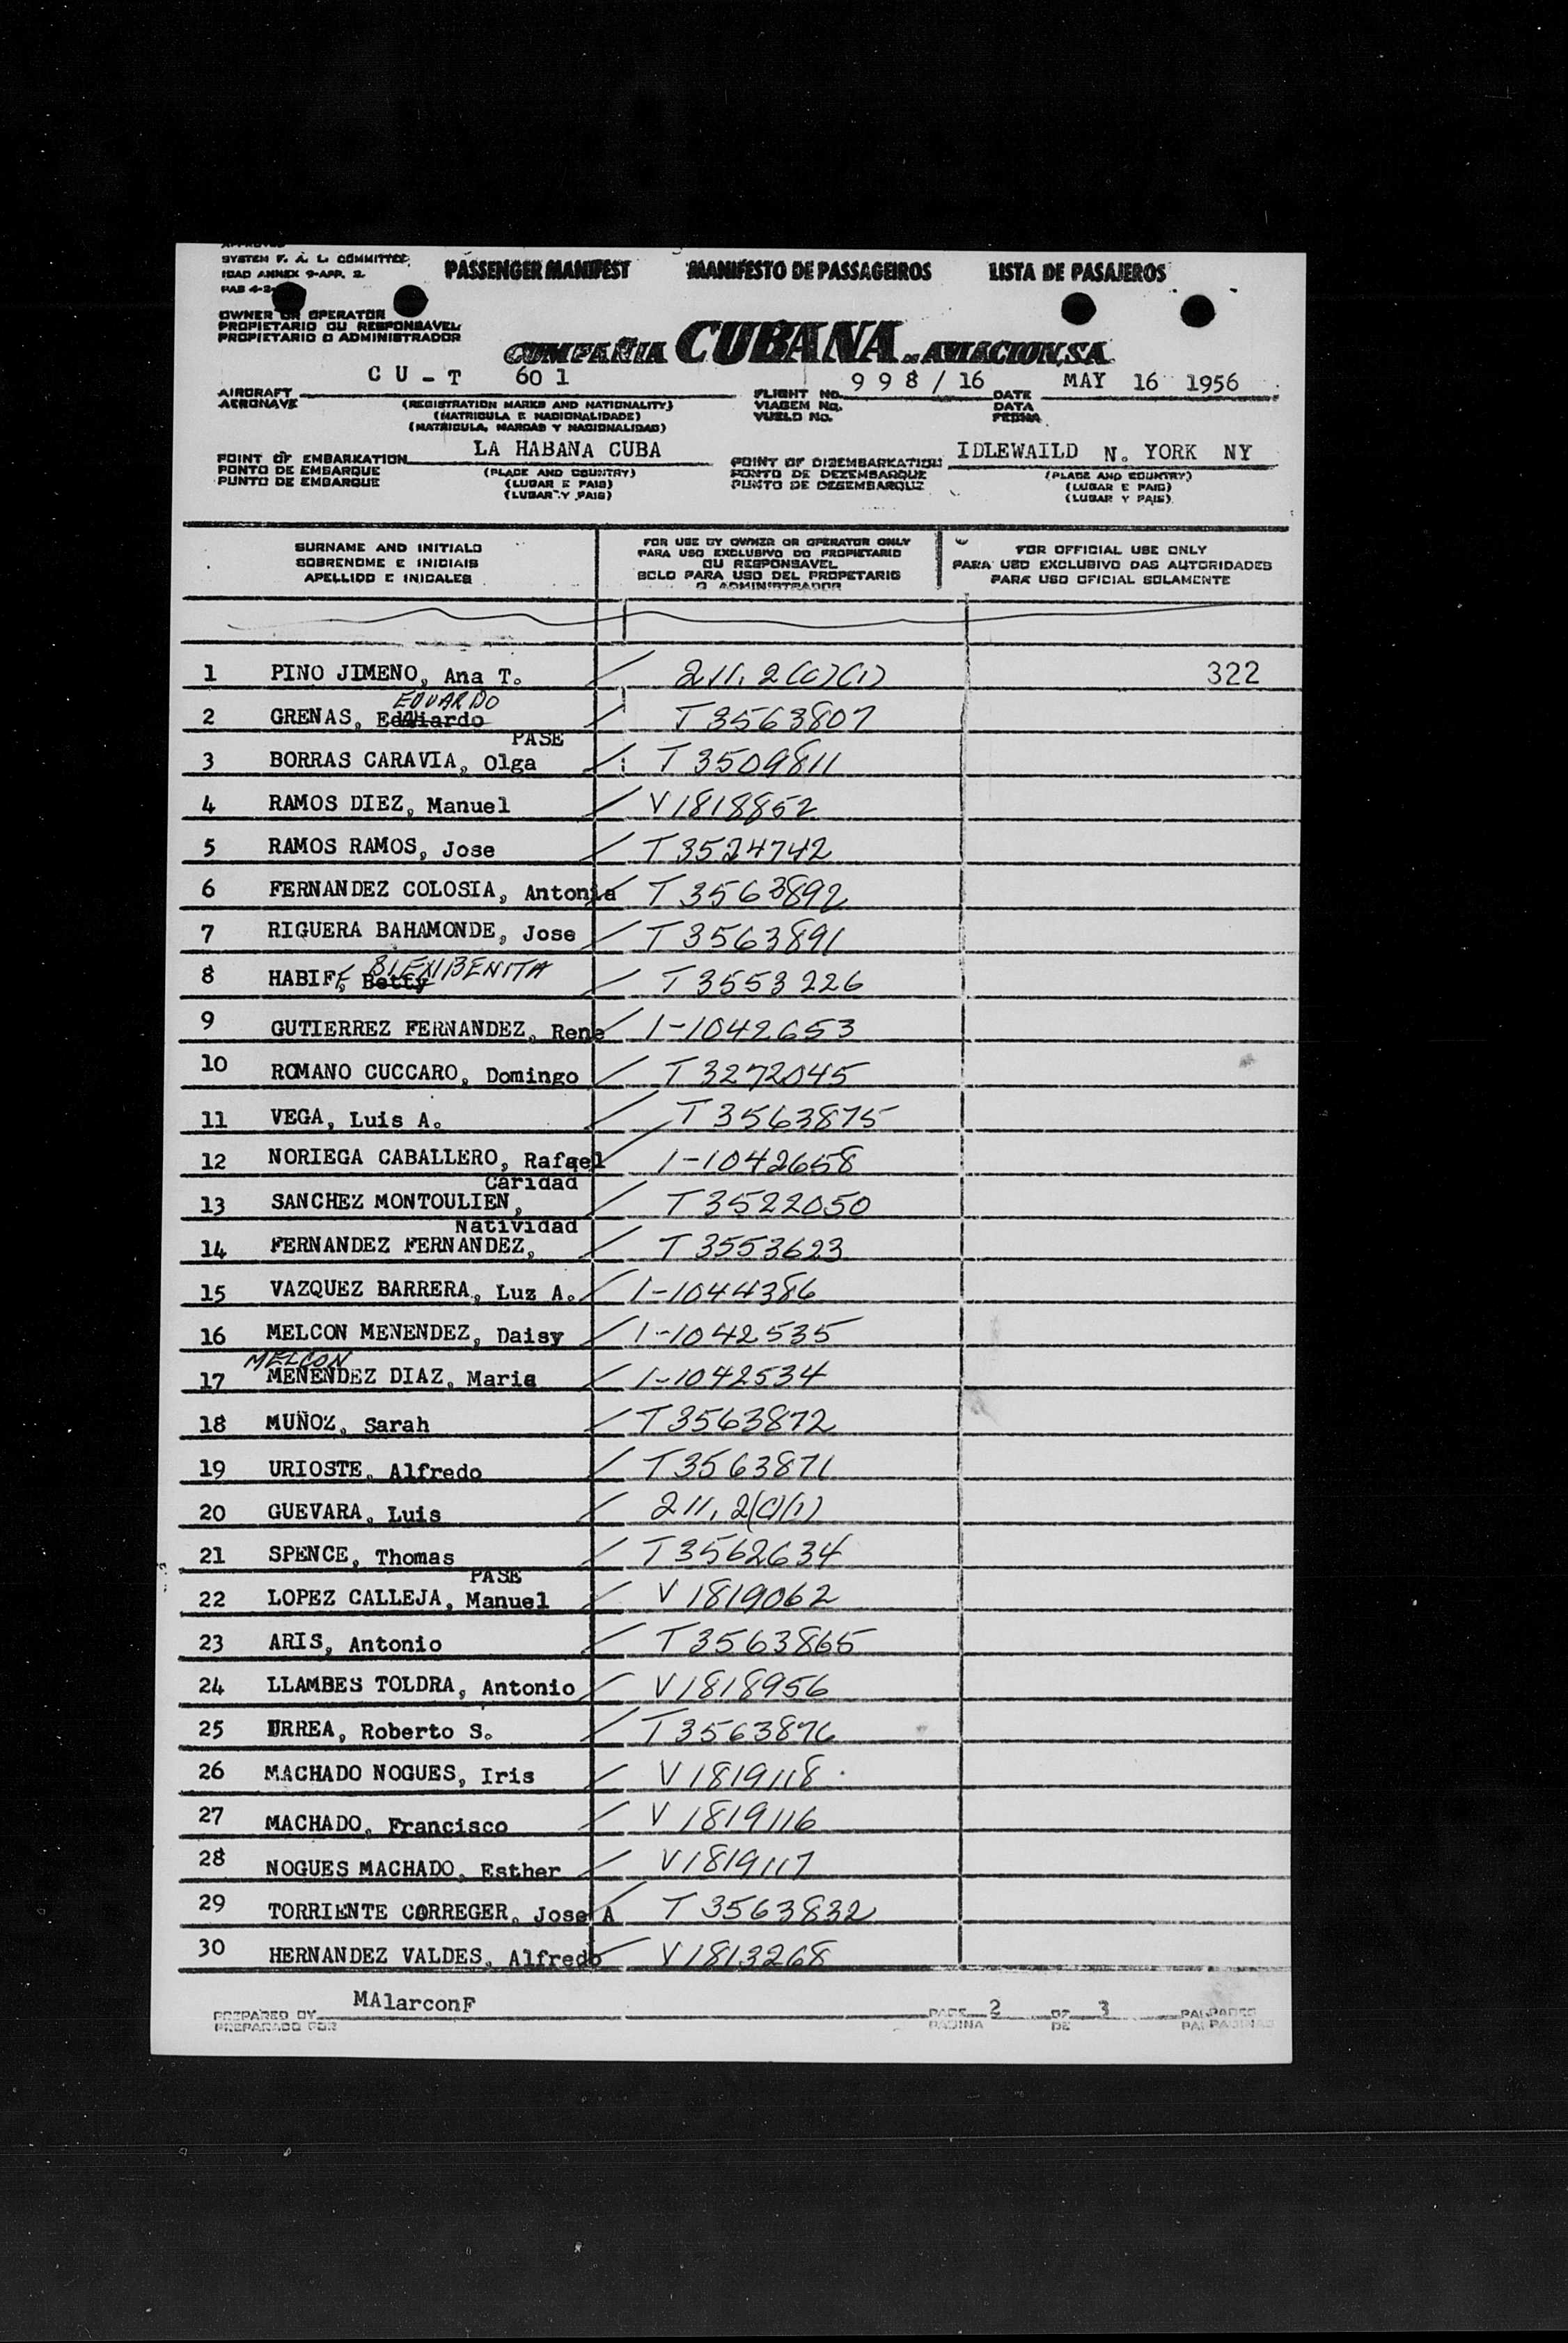 APPROVED
SYSTEM F. A. L. COMMITTEE
ICAO ANNEX 9-APP. 2.
PAB 4-2-
PASSENGER MANIFEST MANIFESTO DE PASSAGEIROS LISTA DE PASAJEROS
OWNER OR OPERATOR
PROPIETARIO OU RESPONSAVEL
PROPIETARIO O ADMINISTRADOR
COMPAÑIA CUBANA DE AVIACION, S.A.
AIRCRAFT CU-T 601 FLIGHT No. 998/16 DATE MAY 16 1956
AERONAVE (REGISTRATION MARKS AND NATIONALITY) VIAGEM No. DATA
(MATRICULA E NACIONALIDADE) VUELO No. FECHA
(MATRICULA, MARCAS Y NACIONALIDAD)
POINT OF EMBARKATION LA HABANA CUBA POINT OF DISEMBARKATION IDLEWAILD N. YORK NY
PONTO DE EMBARQUE (PLACE AND COUNTRY) PONTO DE DEZEMBARQUE (PLACE AND COUNTRY)
PUNTO DE EMBARQUE (LUGAR E PAIS) PUNTO DE DESEMBARQUE (LUGAR E PAIS)
(LUGAR Y PAIS) (LUGAR Y PAIS)
SURNAME AND INITIALS
SOBRENOME E INICIAIS
APELLIDO E INICALES
FOR USE BY OWNER OR OPERATOR ONLY
PARA USO EXCLUSIVO DO PROPIETARIO
OU RESPONSAVEL
SOLO PARA USO DEL PROPETARIO
O ADMINISTRADOR
FOR OFFICIAL USE ONLY
PARA USO EXCLUSIVO DAS AUTORIDADES
PARA USO OFICIAL SOLAMENTE
1 PINO JIMENO, Ana T. 211.2(c)(1) 322
EDUARDO
2 GRENAS, T3563807
PASE
3 BORRAS CARAVIA, Olga T3509811
4 RAMOS DIEZ, Manuel V1818852
5 RAMOS RAMOS, Jose T3524742
6 FERNANDEZ COLOSIA, Antonia T3563892
7 RIGUERA BAHAMONDE, Jose T3563891
BIENBENITA
8 HABIF, Betty T3553226
9 GUTIERREZ FERNANDEZ, Rene 1-1042653
10 ROMANO CUCCARO, Domingo T3272045
11 VEGA, Luis A. T3563875
12 NORIEGA CABALLERO, Rafael 1-1042658
Caridad
13 SANCHEZ MONTOULIEN, T3522050
Natividad
14 FERNANDEZ FERNANDEZ, T3553623
15 VAZQUEZ BARRERA, Luz A. 1-1044386
16 MELCON MENENDEZ, Daisy 1-1042535
MELCON
17 MENENDEZ DIAZ, Maria 1-1042534
18 MUÑOZ, Sarah T3563872
19 URIOSTE, Alfredo T3563871
20 GUEVARA, Luis 211.2(c)(1)
21 SPENCE, Thomas T3562634
PASE
22 LOPEZ CALLEJA, Manuel V1819062
23 ARIS, Antonio T3563865
24 LLAMBES TOLDRA, Antonio V1818956
25 URREA, Roberto S. T3563876
26 MACHADO NOGUES, Iris V1819118
27 MACHADO, Francisco V1819116
28 NOGUES MACHADO, Esther V1819117
29 TORRIENTE CORREGER, Jose A T3563832
30 HERNANDEZ VALDES, Alfredo V1813268
PREPARED BY MAlarconF PAGE 2 OF 3 PAGES
PREPARADO POR PAGINA DE PAGINAS